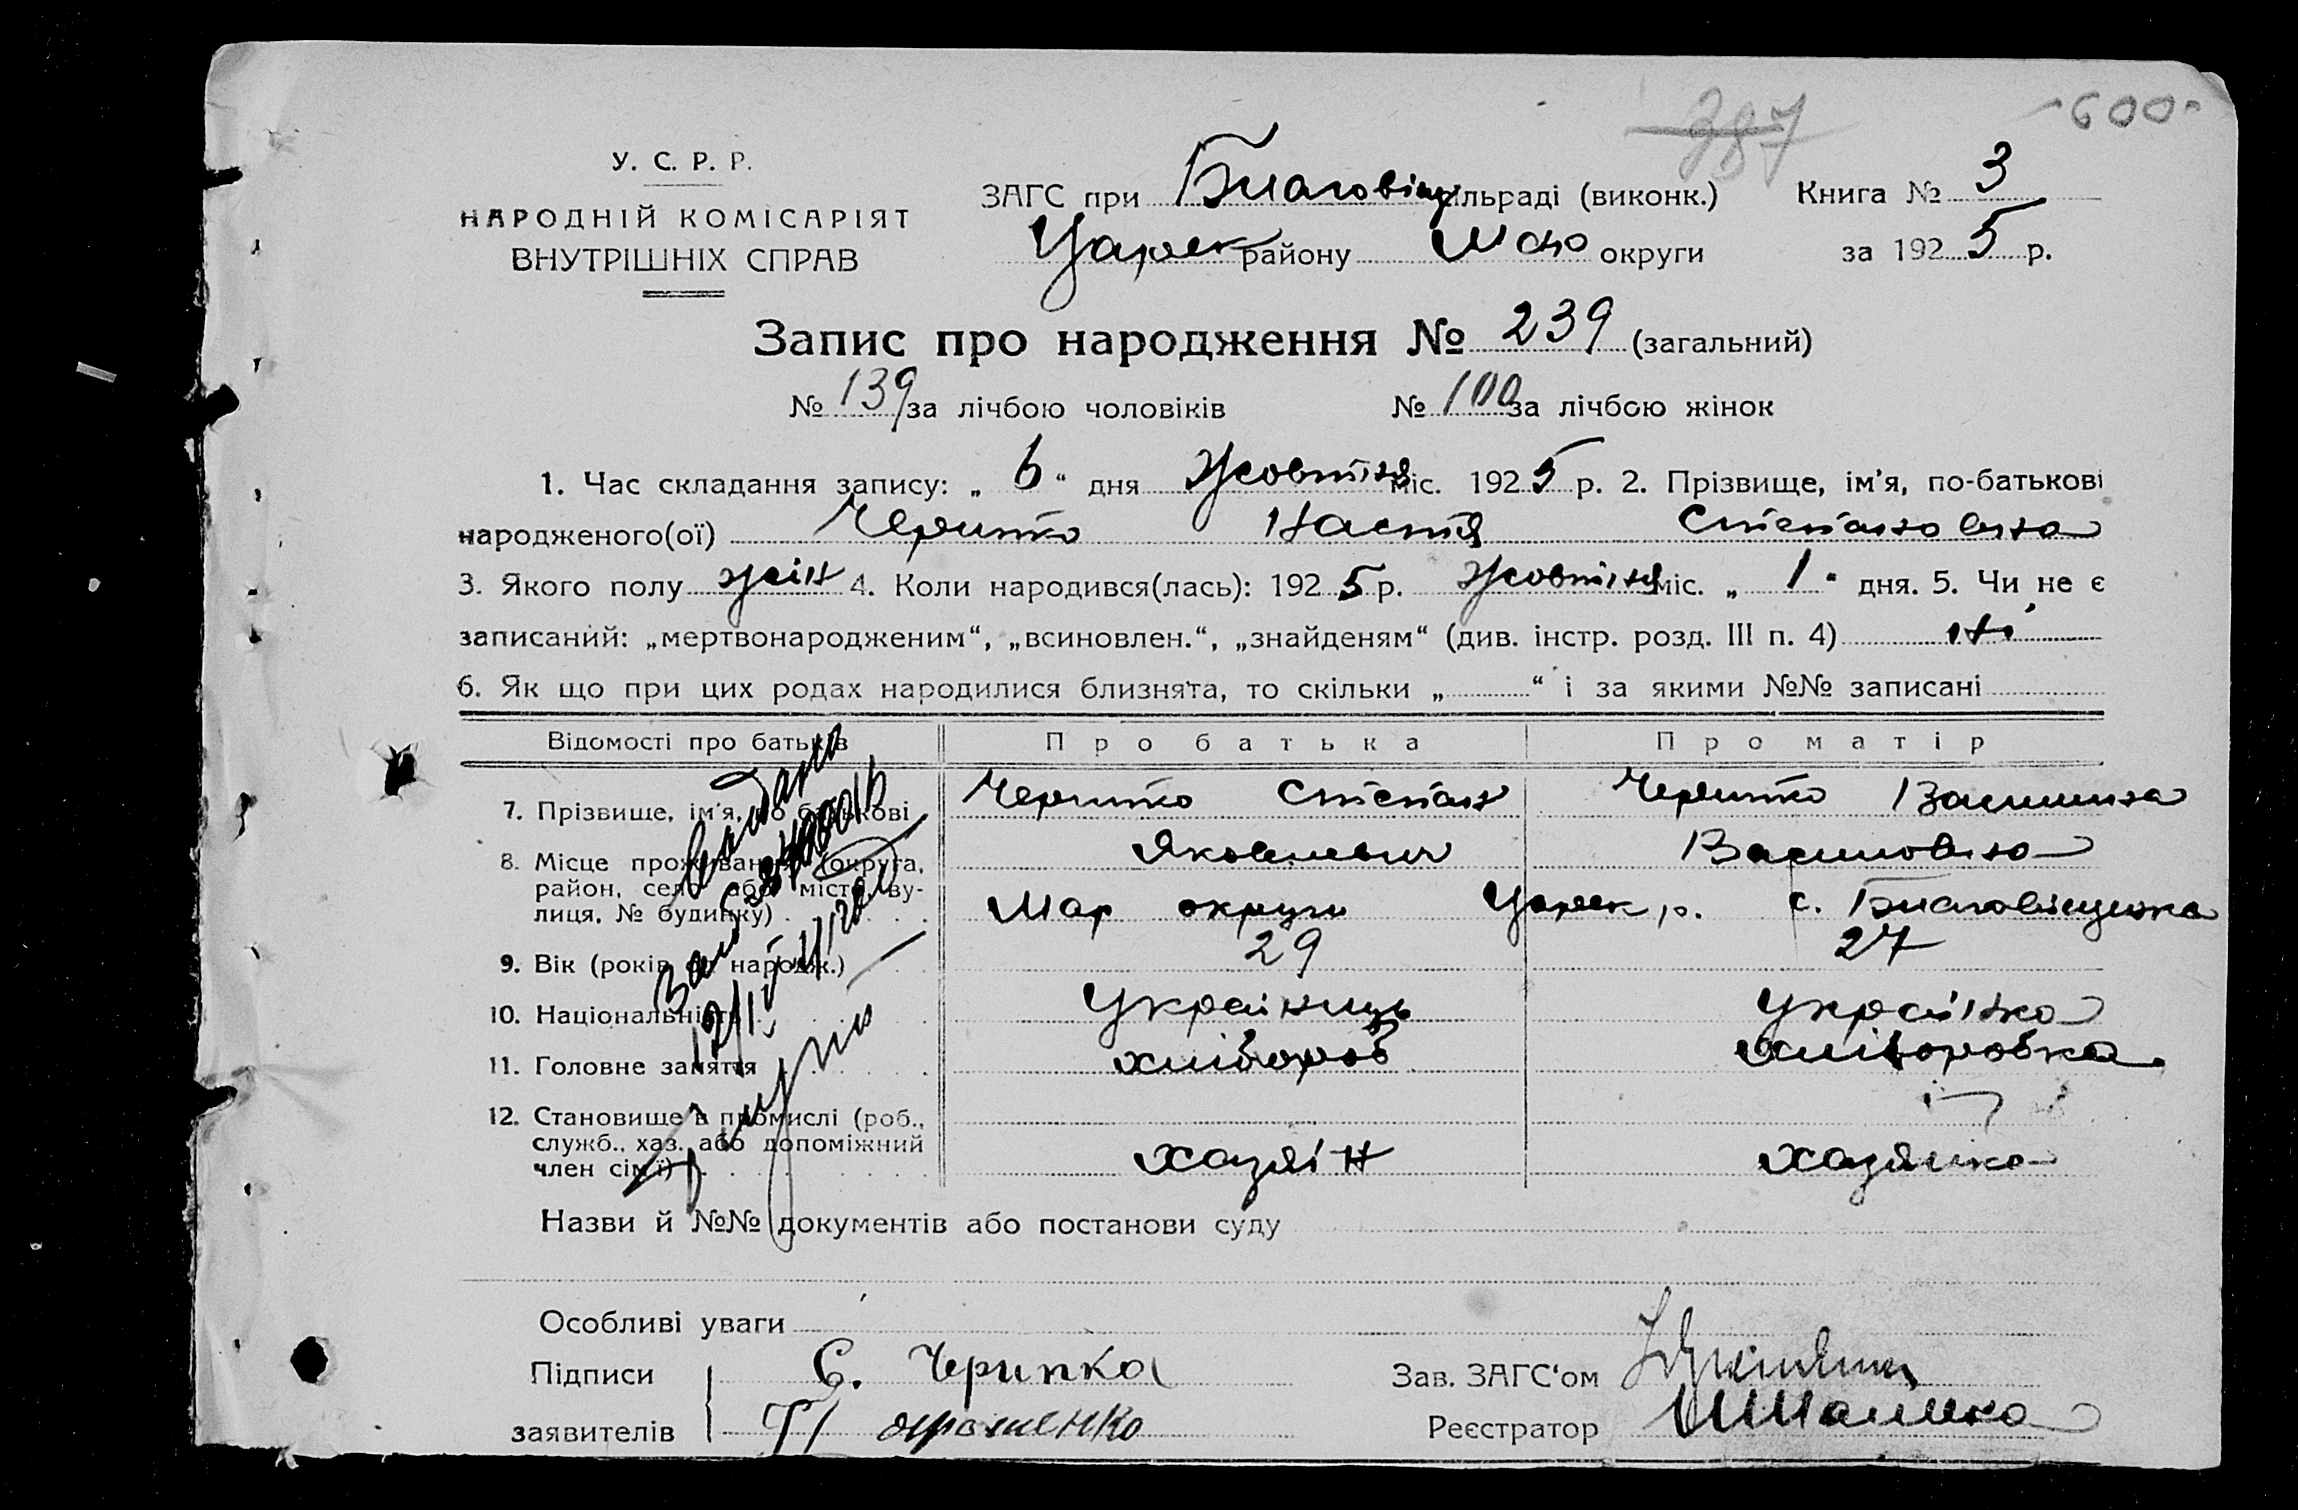 387 -600-
У. С. Р. Р.
НАРОДНІЙ КОМІСАРІЯТ
ВНУТРІШНІХ СПРАВ
ЗАГС при Благовіщ сільраді (виконк.) Книга № 3
Царек району Мар округи за 1925 р.
Запис про народження № 239 (загальний)
№ 139 за лічбою чоловіків № 100 за лічбою жінок
1. Час складання запису: „ 6 “ дня Жовтня міс. 1925 р. 2. Прізвище, ім'я, по-батькові
народженого(ої) Черипко Настя Степановна
3. Якого полу жін 4. Коли народився(лась): 1925 р. Жовтня міс. „ 1 “ дня. 5. Чи не є
записаний: „мертвонародженим“, „всиновлен.“, „знайденям“ (див. інстр. розд. III п. 4) ні
6. Як що при цих родах народилися близнята, то скільки „ “ і за якими №№ записані
Відомості про батьків Про батька Про матір
7. Прізвище, ім'я, по батькові Черипко Степан Черипко Василина
Яковлевич Василовна
8. Місце проживання (округа,
район, село або місто, ву-
лиця, № будинку) Мар округи Царек р. с. Благовіщенка
9. Вік (років од народж.) 29 27
10. Національність Українець Українка
11. Головне заняття хлібороб хліборобка
12. Становище в промислі (роб.,
служб., хаз. або допоміжний
член сім'ї) хазяін хазяйка
Назви й №№ документів або постанови суду
Особливі уваги
Підписи С. Черипка Зав. ЗАГС'ом
заявителів Реєстратор